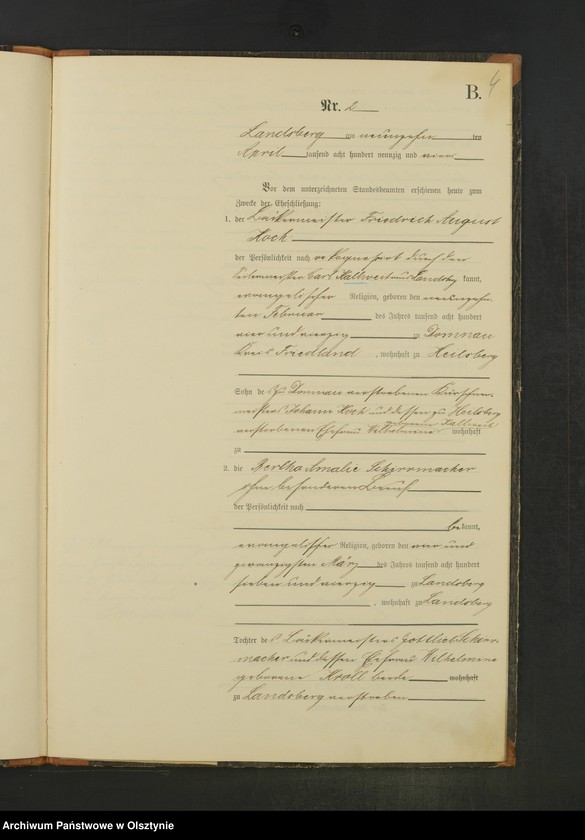 B. 4
Nr. 2
Landsberg am neunzehn ten
April tausend acht hundert neunzig und vier
Vor dem unterzeichneten Standesbeamten erschienen heute zum
Zwecke der Eheschließung:
1. der Bäckermeister Friedrich August
Hoch
der Persönlichkeit nach rekognosirt durch den
Carl Kallweit aus Landsbg kannt,
evangelischer Religion, geboren den neunzehn
ten Februar des Jahres tausend acht hundert
vier und vierzig zu Domnau
Kreis Friedland, wohnhaft zu Heilsberg
Sohn des zu Domnau verstorbenen Kürschner-
meisters Johann Hoch und dessen zu Heilsberg
verstorbenen Ehefrau Wilhelmine geborene Kallweit wohnhaft
zu
2. die Bertha Amalie Schirrmacher
ohne besonderen Beruf
der Persönlichkeit nach
bekannt,
evangelischer Religion, geboren den vier und
zwanzigsten März des Jahres tausend acht hundert
sieben und vierzig zu Landsberg
, wohnhaft zu Landsberg
Tochter des Bäckermeisters Gottlieb Schirr-
macher und dessen Ehefrau Wilhelmine
geborene Kroll beide wohnhaft
zu Landsberg verstorben
Archiwum Państwowe w Olsztynie